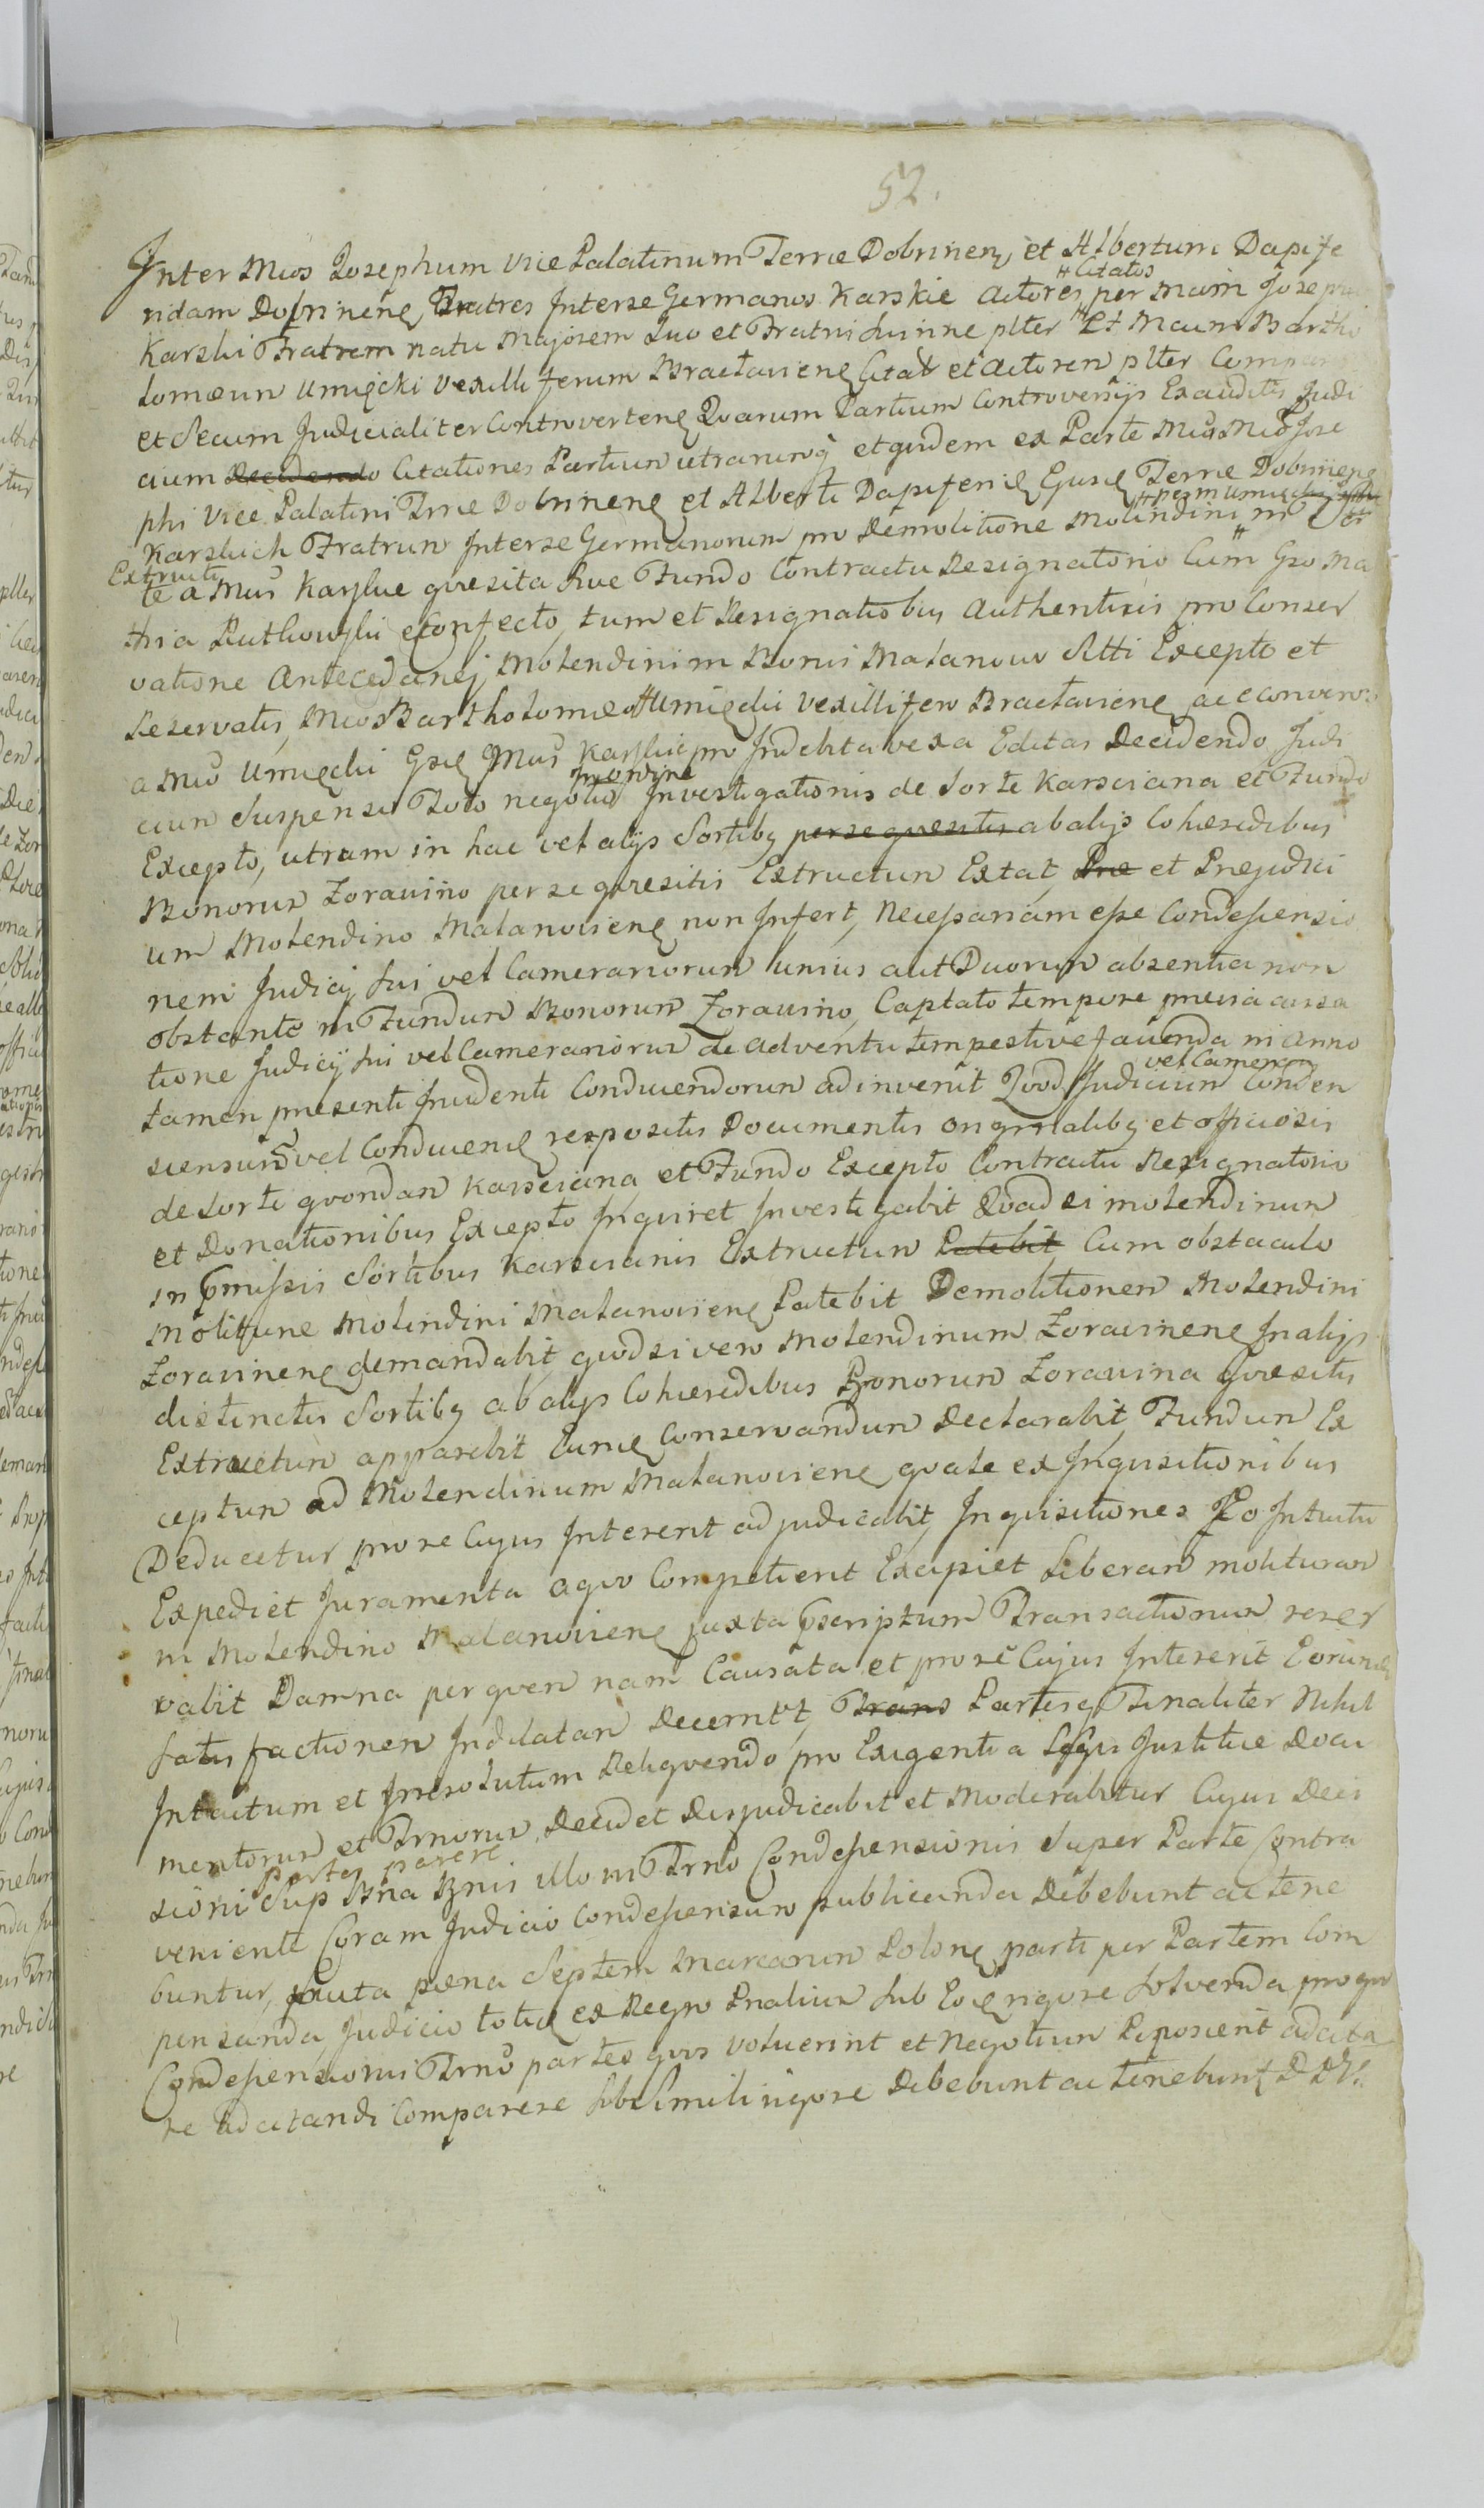 52.
Inter Mcos Josephum Vice Palatinum Terræ Dobrinen. et Albertum Dapife
ridam Dobrinen. Fratres Interse Germanos Karskie Actores # Citatos per Mcum Jose
Karski Fratrem natu Majorem suo et Fratris sui nne plter # Et Mcum Bartho
lomæum Umięcki Vexilliferum Bractavien. Citat et Actorem plter Compar
et Secum Judicialiter Controverten. Quarum Partium Controversÿs Exauditis Judi
cium Decidendo Citationes Partium utrarumq et quidem ex Parte Mcor Mci Jose
phi Vice Palatini Trræ Dobrinen. et Alberti Dapiferi Terræ Dobrinen.
Karskich Fratrum Interse Germanorum pro Demolitione Molindini # per M Umięcki in
Extructi
te a Mcis Karskie qvæsita sive Fundo Contractu Resignatorio Cum Gso Ma
thia Rutkowski Confecto, tum et Resignatiobus Authenticis pro Conser
vatione Antecedanej Molendini in Bonis Malanowo Siti Excepto et
Reservatis, Mco Bartholomæo Umięcki Vexillifero Bractavien. ac e converso
a Mco Umięcki Mcis Karskie pro Indebita vexa Editas Decidendo Judi
cium Suspenso Toto negotio In ordine Investigationis de Sorte Karsciana et Fundo
Excepto, utrum in hac vel alÿs Sortibus per se qvæsitis ab alÿs Cohæredibus
Bonorum Zoravino per se qvæsitis Extructum Extat, Præ et Præjudici
um Molendino Malanovien. non Infert, Necessariam esse Condescensio
nem Judicÿ Sui vel Camerariorum unius aut Duorum absentia non
obstante in Fundum Bonorum Zoravino, Captato tempore prævia avisa
tione Judicÿ Sui vel Camerariorum de adventu tempestive facienda in Anno
tamen præsenti Incidenti Conducendorum adinvenit Qvod Judicium vel Camerar Conden
scensurum vel Conducen. repositis Documentis originalibus et officiosis
de Sorte qvondam Karsciana et Fundo Excepto Contractu Resignatorio
et Donationibus Excepto Inquiret Investigabit Qvod si molendinum
in præmissis Sortibus Karscianis Extructum Patebit Cum obstaculo
Moliturae Molindini Malanovien. Patebit Demolitionem Molendini
Zoravinen. demandabit, qvodsi vero Molendinum Zoravinen. In alÿs
distinctis Sortibus ab alÿs Cohæredibus Bonorum Zoravina Qvæsitis
Extructum apparebit Conservandum Declarabit, Fundum Ex
ceptum ad Molendinum Malanovien. quale ex Inquisitionibus
Deducetur pro re Cujus Intererit adjudicabit, Inquisitiones Eo Intuitu
Expediet Juramenta a quo Competierit Excipiet Liberam molituram
in Molendino Malanovien. juxta præscriptum Transactionum reser
vabit Damna per qvem nam Causata et pro re Cujus Intererit Eorund
Satisfactionem Indilatam Decernet, Trans Partesq Finaliter Nihil
Intactum et Irresolutum Relinquendo, pro Exigentia Legis Justitiæ Docu
mentorum et Trnorum, Decidet Dirjudicabit et Moderabitur Cujus Deci
sioni Partes parere Sup Bna Bnis illo in Trno Condescensionis Super Parte Contra
veniente Coram Judicio Condescensuro publicanda Debebunt ac tene
buntur, pæna Septem Marcarum Polon. parti per Partem Com
pensanda, Judicio totid ex Regno Prælium sub rigore Solvenda pro quo
Condescensionis Trno partes quos voluerint et Negotium Poposcerit adcita
re adcitandi Comparere sub simili rigore Debebunt ac tenebunt D D.